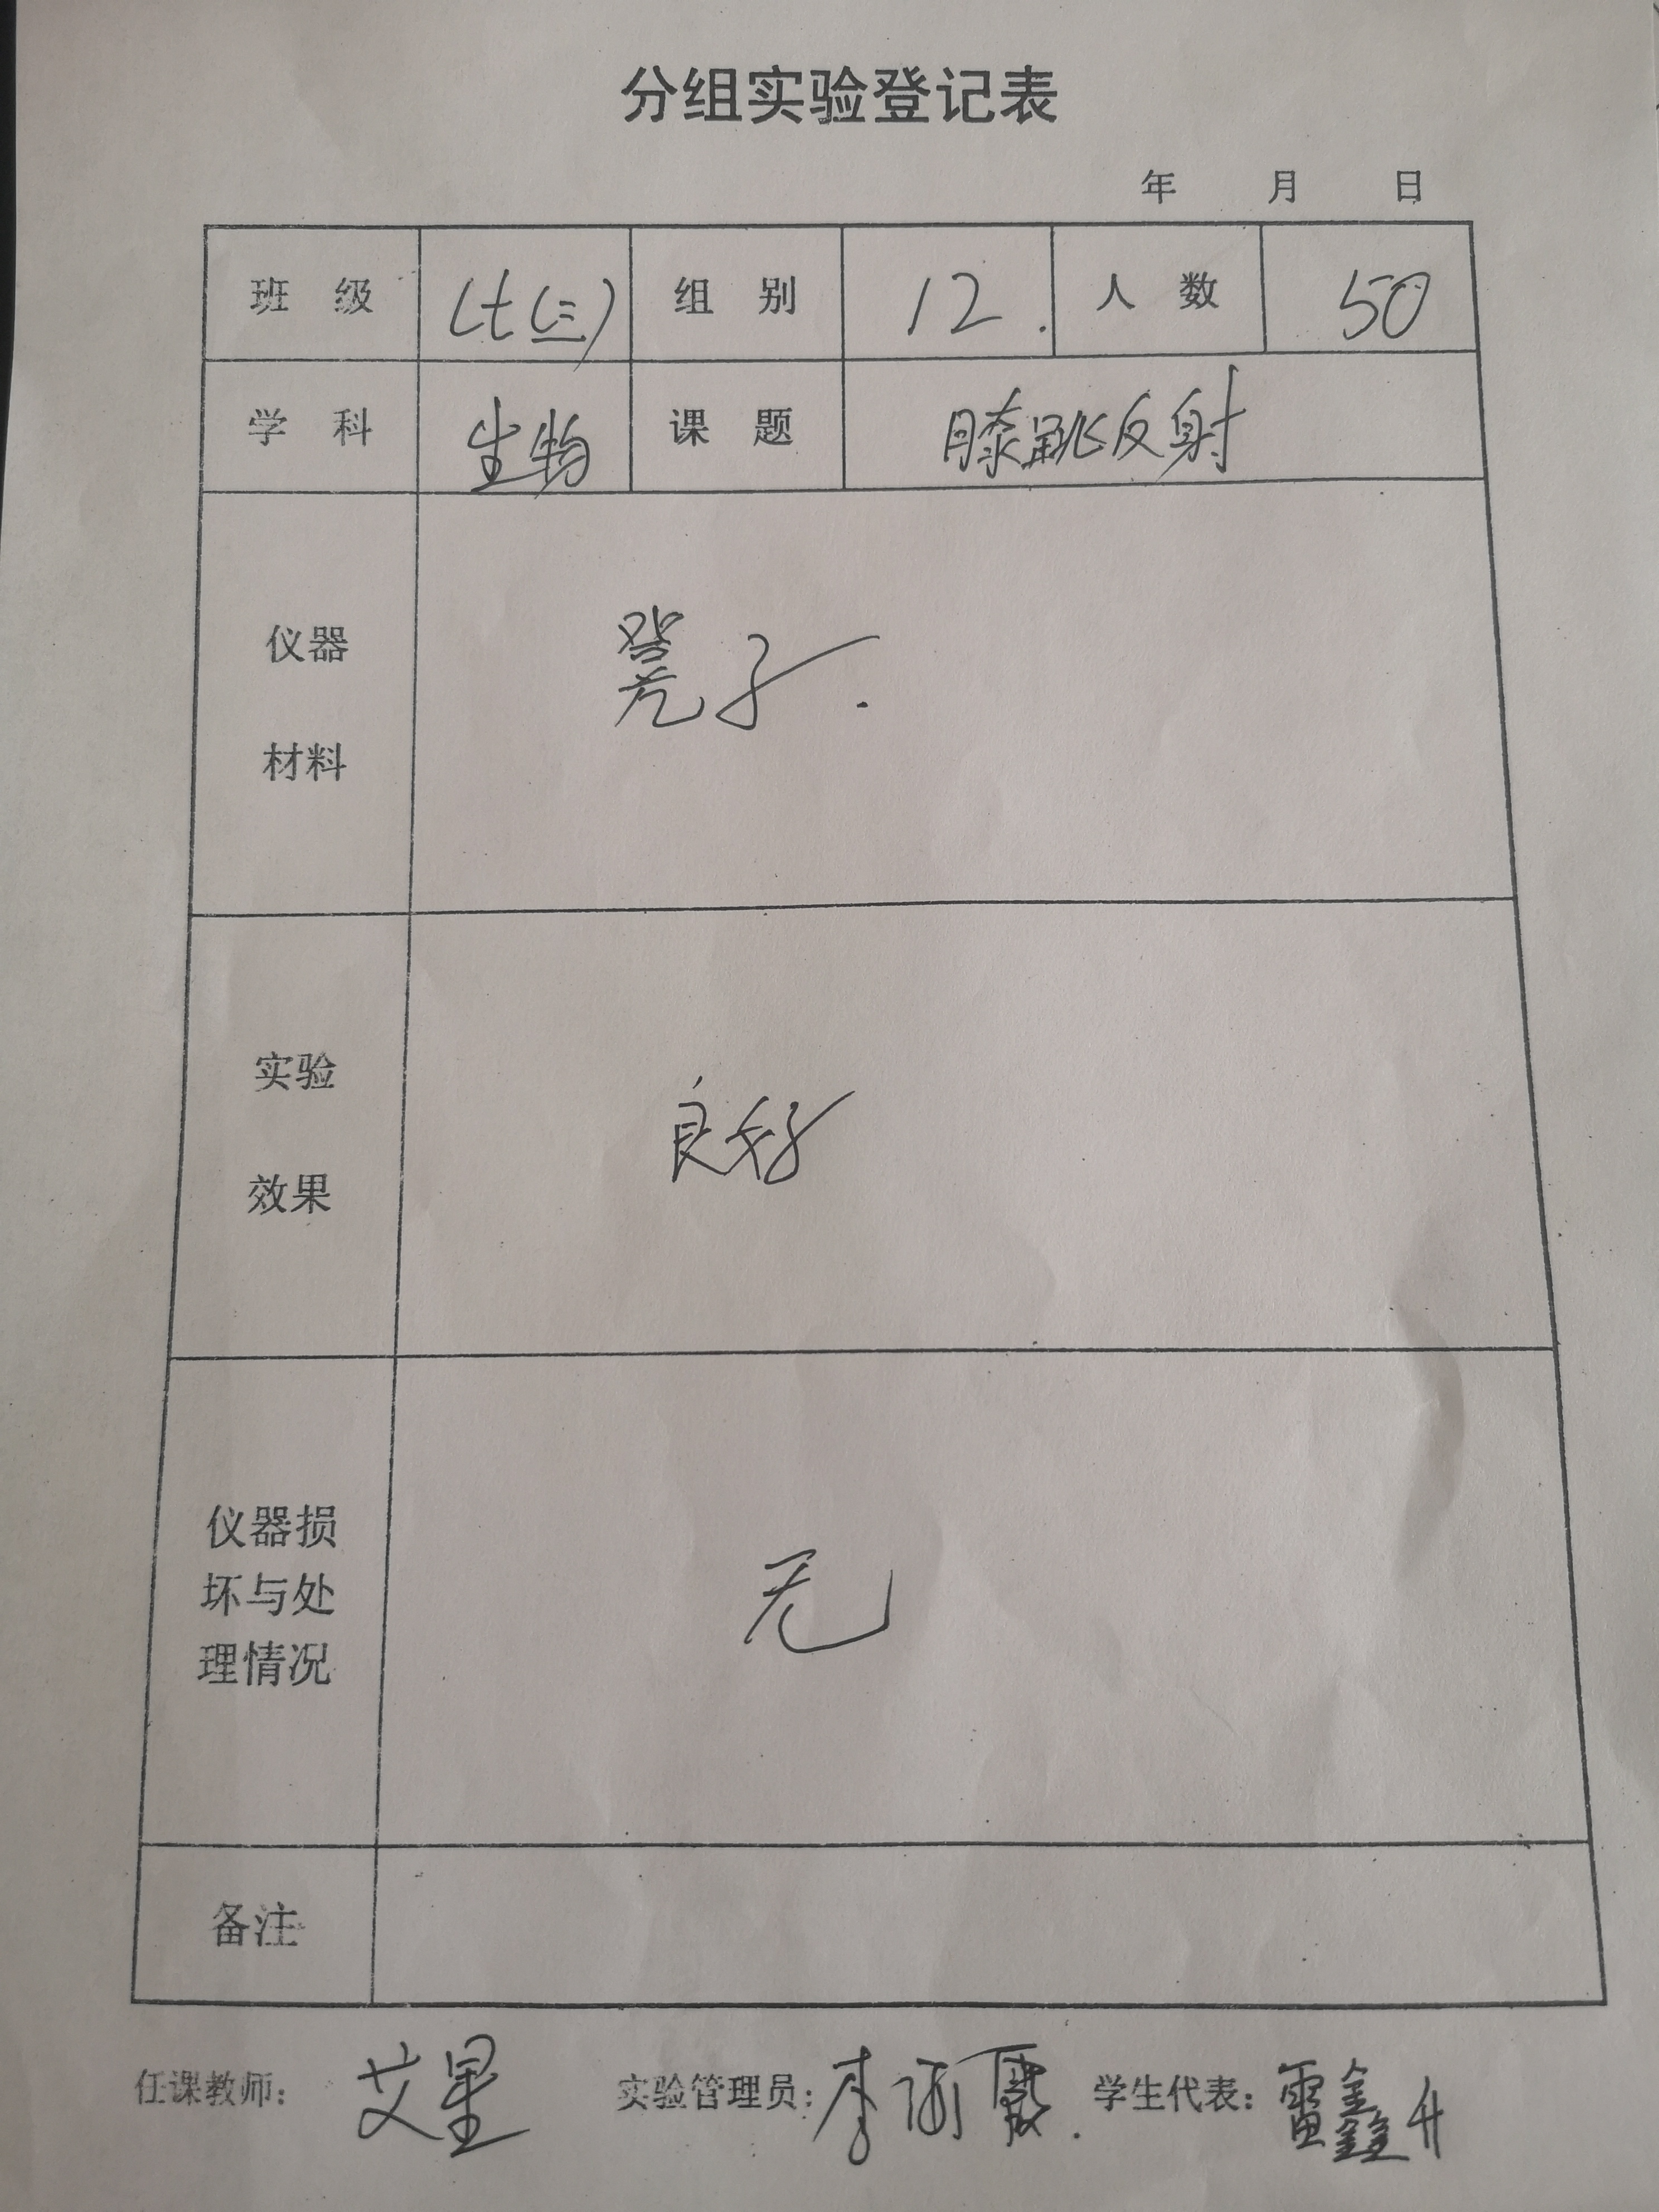 分组实验登记表
年 月 日
班 级 七(三) 组 别 12. 人 数 50
学 科 生物 课 题 膝跳反射
仪器
材料
凳子.
实验
效果
良好
仪器损
坏与处
理情况
无
备注
任课教师: 艾星 实验管理员: 李 学生代表: 雷鑫升